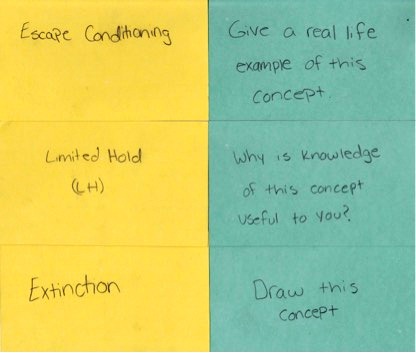 Escape Conditioning
Give a real life
example of this
concept.
Limited Hold
(LH)
Why is knowledge
of this concept
useful to you?
Extinction
Draw this
concept